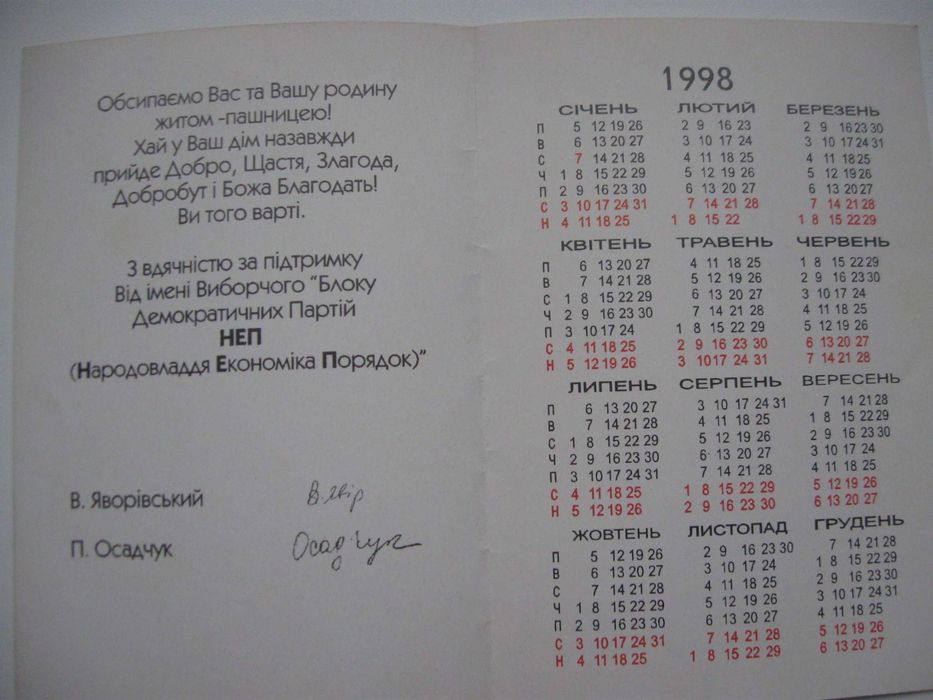 Обсипаємо Вас та Вашу родину
житом -пашницею!
Хай у Ваш дім назавжди
прийде Добро, Щастя, Злагода,
Добробут і Божа Благодать!
Ви того варті.
З вдячністю за підтримку
Від імені Виборчого "Блоку
Демократичних Партій
НЕП
(Народовладдя Економіка Порядок)"
В. Яворівський
П. Осадчук Осадчук
1998
СІЧЕНЬ ЛЮТИЙ БЕРЕЗЕНЬ
П 5 12 19 26 2 9 16 23 2 9 16 23 30
В 6 13 20 27 3 10 17 24 3 10 17 24 31
С 7 14 21 28 4 11 18 25 4 11 18 25
Ч 1 8 15 22 29 5 12 19 26 5 12 19 26
П 2 9 16 23 30 6 13 20 27 6 13 20 27
С 3 10 17 24 31 7 14 21 28 7 14 21 28
Н 4 11 18 25 1 8 15 22 1 8 15 22 29
КВІТЕНЬ ТРАВЕНЬ ЧЕРВЕНЬ
П 6 13 20 27 4 11 18 25 1 8 15 22 29
В 7 14 21 28 5 12 19 26 2 9 16 23 30
С 1 8 15 22 29 6 13 20 27 3 10 17 24
Ч 2 9 16 23 30 7 14 21 28 4 11 18 25
П 3 10 17 24 1 8 15 22 29 5 12 19 26
С 4 11 18 25 2 9 16 23 30 6 13 20 27
Н 5 12 19 26 3 10 17 24 31 7 14 21 28
ЛИПЕНЬ СЕРПЕНЬ ВЕРЕСЕНЬ
П 6 13 20 27 3 10 17 24 31 7 14 21 28
В 7 14 21 28 4 11 18 25 1 8 15 22 29
С 1 8 15 22 29 5 12 19 26 2 9 16 23 30
Ч 2 9 16 23 30 6 13 20 27 3 10 17 24
П 3 10 17 24 31 7 14 21 28 4 11 18 25
С 4 11 18 25 1 8 15 22 29 5 12 19 26
Н 5 12 19 26 2 9 16 23 30 6 13 20 27
ЖОВТЕНЬ ЛИСТОПАД ГРУДЕНЬ
П 5 12 19 26 2 9 16 23 30 7 14 21 28
В 6 13 20 27 3 10 17 24 1 8 15 22 29
С 7 14 21 28 4 11 18 25 2 9 16 23 30
Ч 1 8 15 22 29 5 12 19 26 3 10 17 24 31
П 2 9 16 23 30 6 13 20 27 4 11 18 25
С 3 10 17 24 31 7 14 21 28 5 12 19 26
Н 4 11 18 25 1 8 15 22 29 6 13 20 27